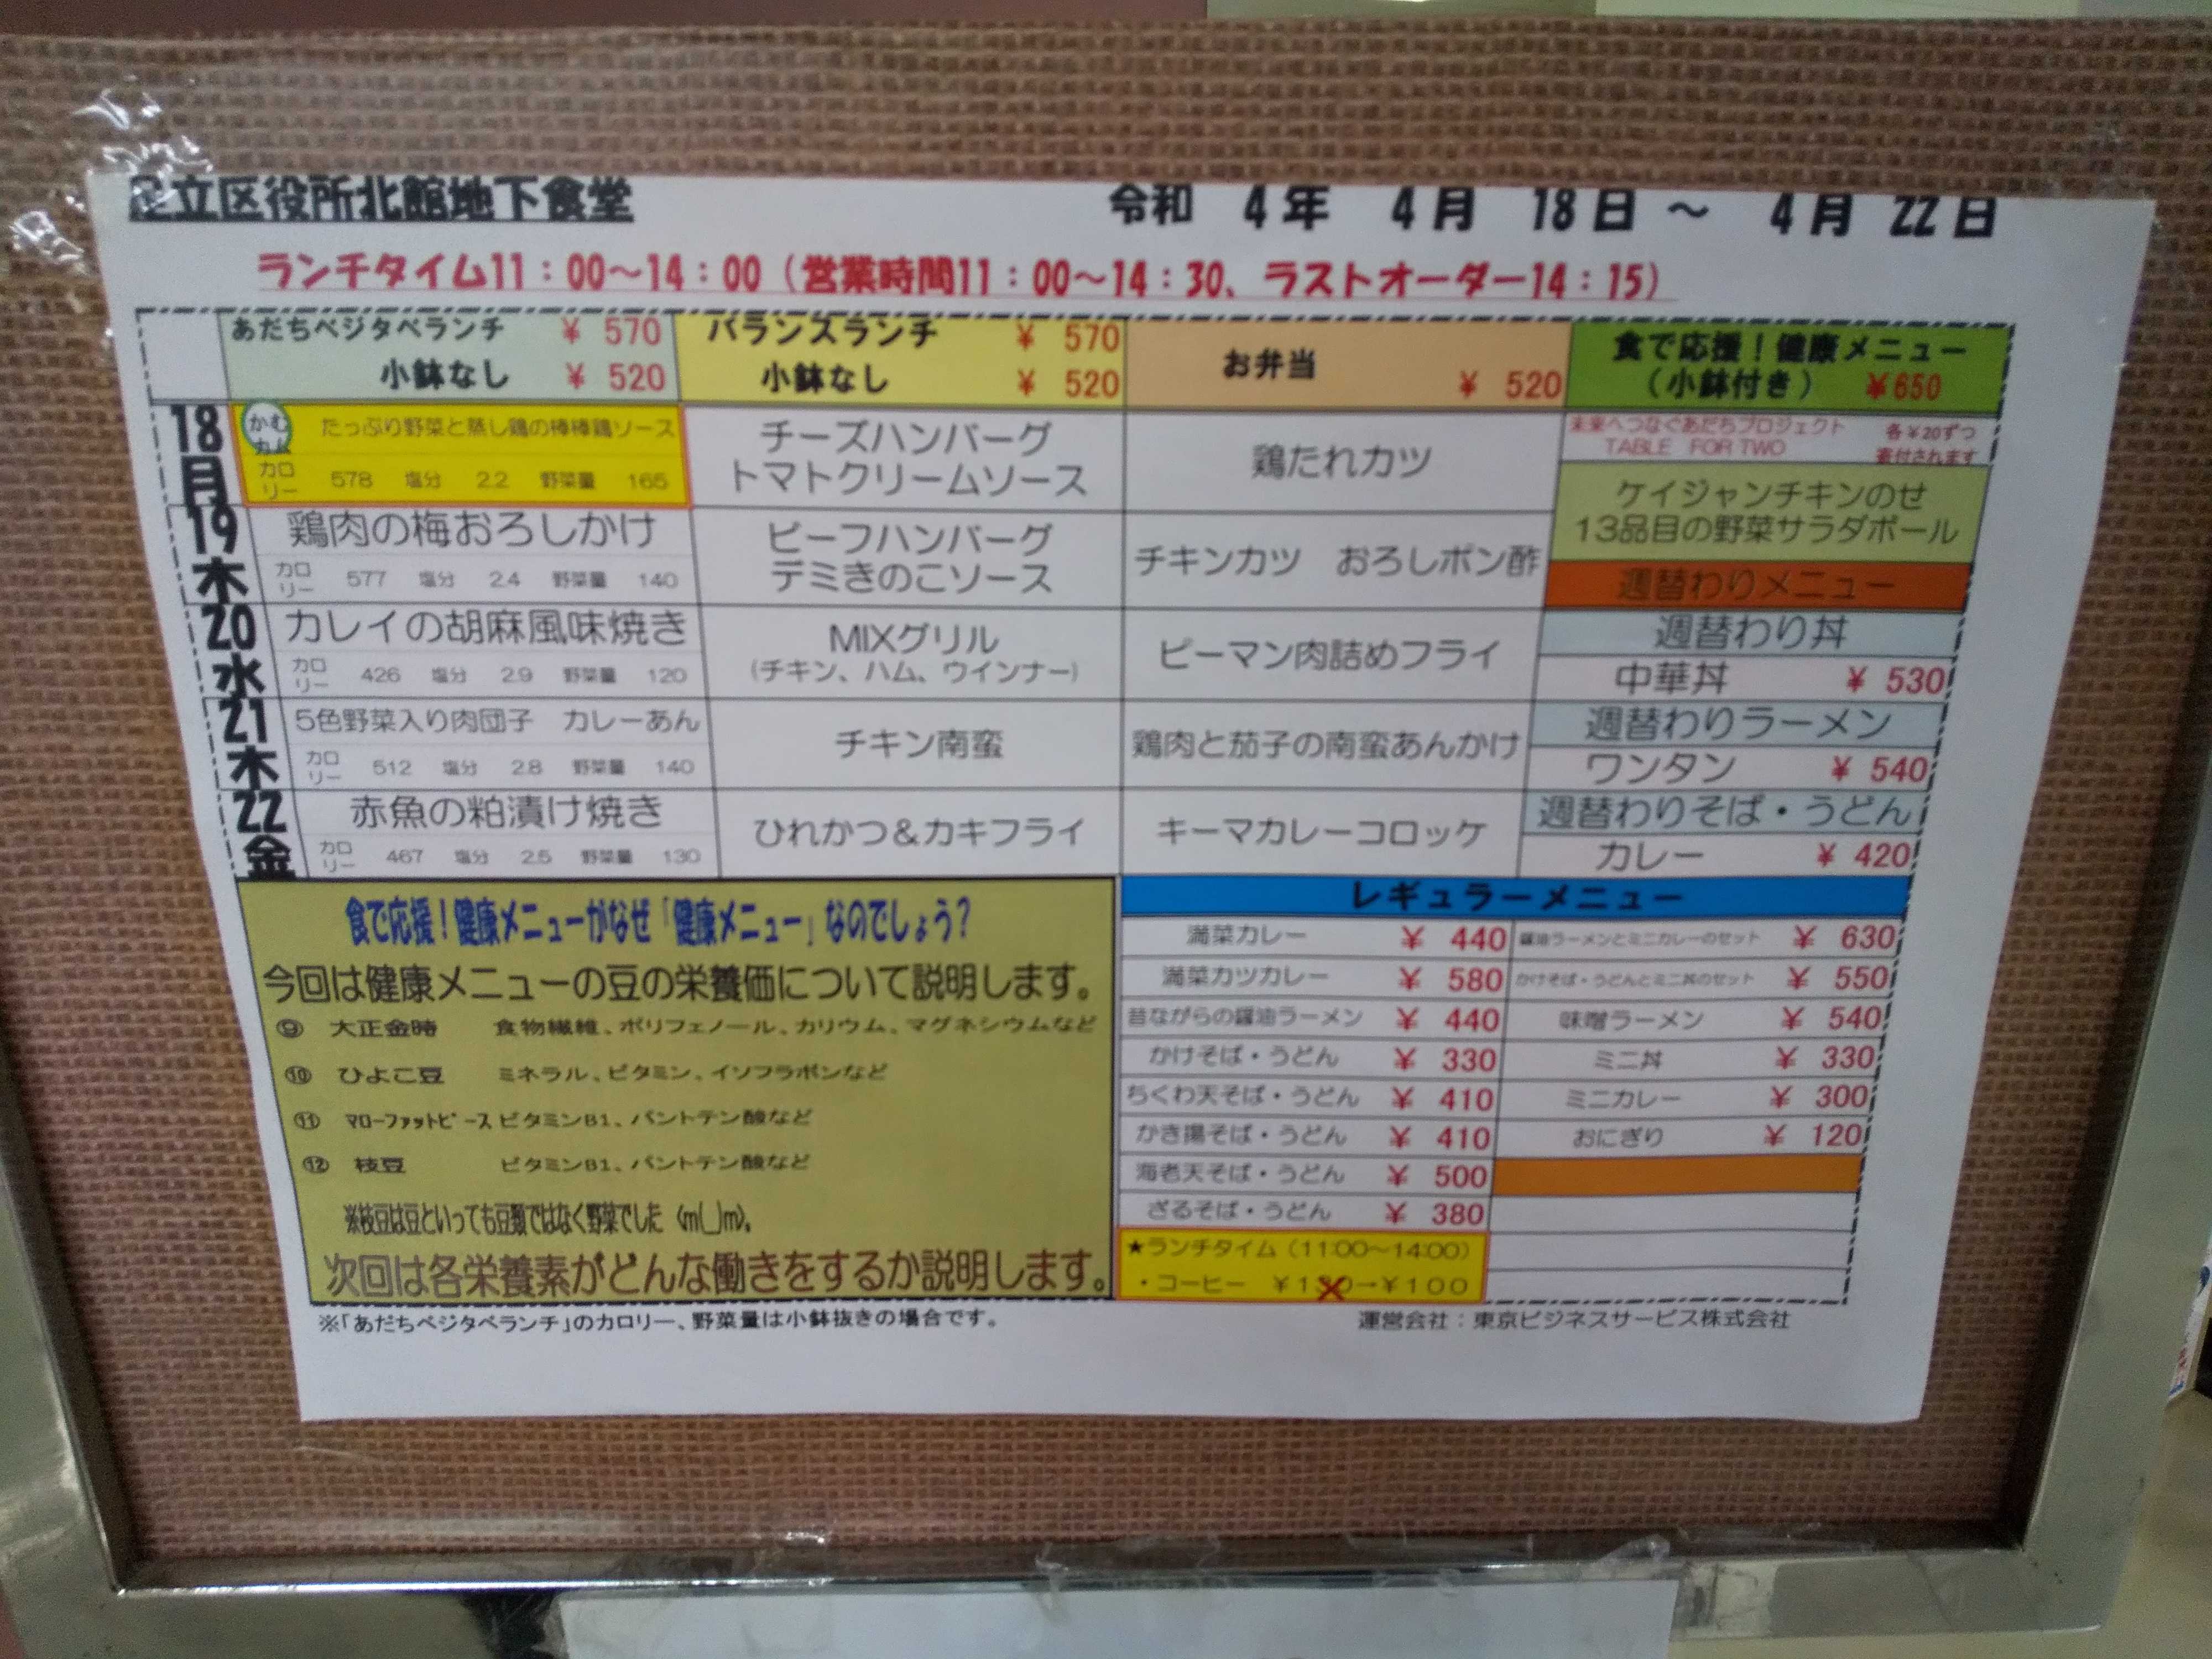 足立区役所北館地下食堂
令和 4年 4月 18日 ～ 4月 22日
ランチタイム11：00～14：00（営業時間11：00～14：30、ラストオーダー14：15）
あだちベジタベランチ ￥ 570
小鉢なし ￥ 520
バランスランチ ￥ 570
小鉢なし ￥ 520
お弁当 ￥ 520
食で応援！健康メニュー
（小鉢付き） ￥650
18
月
かむ
カム
たっぷり野菜と蒸し鶏の棒棒鶏ソース
カロリー 578 塩分 2.2 野菜量 165
チーズハンバーグ
トマトクリームソース
鶏たれカツ
未来へつなぐあだちプロジェクト
TABLE FOR TWO
各￥20ずつ
寄付されます
ケイジャンチキンのせ
13品目の野菜サラダボール
19
木
鶏肉の梅おろしかけ
カロリー 577 塩分 2.4 野菜量 140
ビーフハンバーグ
デミきのこソース
チキンカツ おろしポン酢
週替わりメニュー
20
水
カレイの胡麻風味焼き
カロリー 426 塩分 2.9 野菜量 120
MIXグリル
（チキン、ハム、ウインナー）
ピーマン肉詰めフライ
週替わり丼
中華丼 ￥ 530
21
木
5色野菜入り肉団子 カレーあん
カロリー 512 塩分 2.8 野菜量 140
チキン南蛮
鶏肉と茄子の南蛮あんかけ
週替わりラーメン
ワンタン ￥ 540
22
金
赤魚の粕漬け焼き
カロリー 467 塩分 2.5 野菜量 130
ひれかつ＆カキフライ
キーマカレーコロッケ
週替わりそば・うどん
カレー ￥ 420
食で応援！健康メニューがなぜ「健康メニュー」なのでしょう？
今回は健康メニューの豆の栄養価について説明します。
⑨ 大正金時 食物繊維、ポリフェノール、カリウム、マグネシウムなど
⑩ ひよこ豆 ミネラル、ビタミン、イソフラボンなど
⑪ マローファットピース ビタミンB1、パントテン酸など
⑫ 枝豆 ビタミンB1、パントテン酸など
※枝豆は豆といっても豆類ではなく野菜でした（m(_)m)。
次回は各栄養素がどんな働きをするか説明します。
レギュラーメニュー
満菜カレー ￥ 440
満菜カツカレー ￥ 580
昔ながらの醤油ラーメン ￥ 440
かけそば・うどん ￥ 330
ちくわ天そば・うどん ￥ 410
かき揚そば・うどん ￥ 410
海老天そば・うどん ￥ 500
ざるそば・うどん ￥ 380
醤油ラーメンとミニカレーのセット ￥ 630
かけそば・うどんとミニ丼のセット ￥ 550
味噌ラーメン ￥ 540
ミニ丼 ￥ 330
ミニカレー ￥ 300
おにぎり ￥ 120
★ランチタイム（11:00～14:00）
・コーヒー →￥100
※「あだちベジタベランチ」のカロリー、野菜量は小鉢抜きの場合です。
運営会社：東京ビジネスサービス株式会社